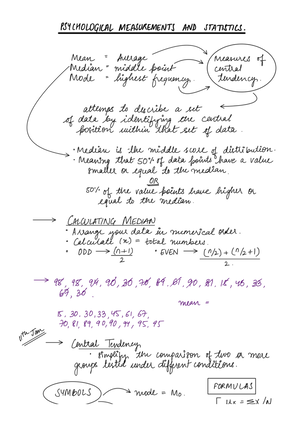 PSYCHOLOGICAL MEASUREMENTS AND STATISTICS.
Mean = Average
Median = middle point
Mode = highest frequency.
measures of
central
tendency.
attempts to describe a set
of data by identifying the central
position within that set of data.
• Median is the middle score of distribution.
• Meaning that 50% of data points have a value
smaller or equal to the median.
OR
50% of the value points have higher or
equal to the median.
→ CALCULATING MEDIAN
• Arrange your data in numerical order.
• Calculate (x) = total numbers.
• ODD → (n+1)
2
• EVEN → (n/2) + (n/2+1)
2
mean =
5, 30, 30, 33, 45, 61, 67,
70, 81, 89, 90, 90, 94, 95, 95
→ Central Tendency
• Simplify the comparison of two or more
groups tested under different conditions.
SYMBOLS
mode = Mo.
FORMULAS